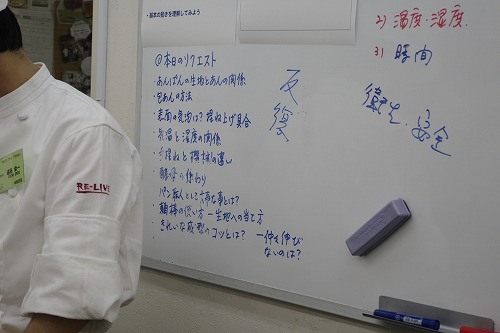 ・基本の動きを理解してみよう
◎本日のリクエスト
・あんぱんの生地とあんの関係
・包あんの方法
・表面の気泡は？捏ね上げ具合
・気温と湿度の関係
・手捏ねと機械の違い
・パン職人として大事な事とは？
・麺棒の使い方－生地への当て方
・きれいな成型のコツとは？ー伸び
ないのは？
反復
2）温度・湿度
3）時間
衛生・安全
RE-LIVE